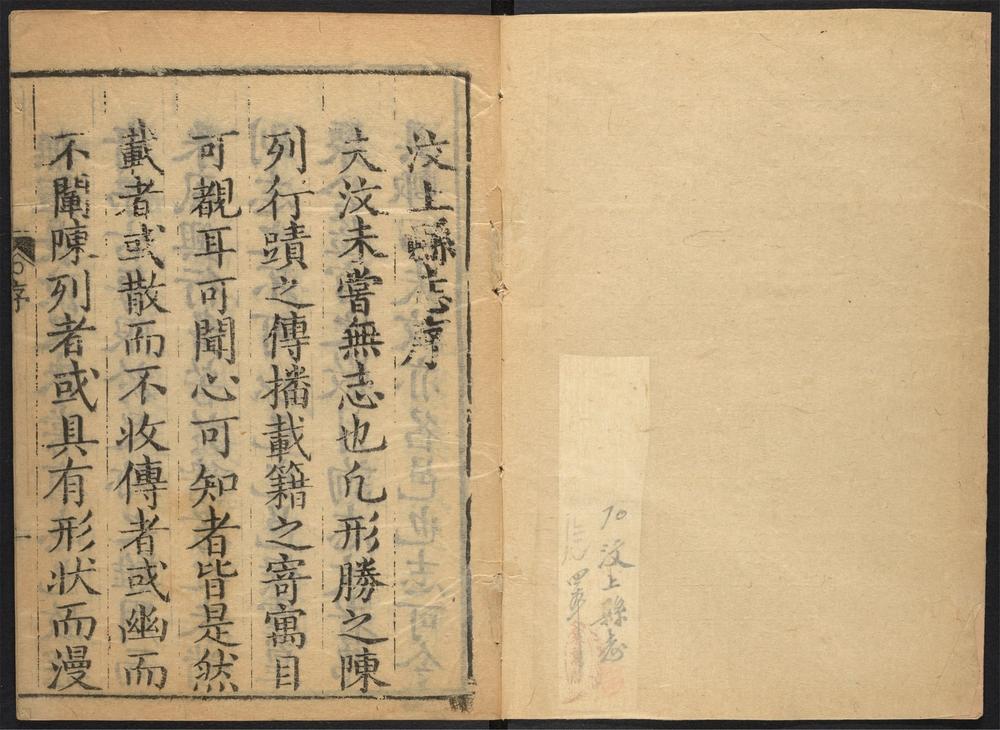 70 汶上縣志
四軍
汶上縣志序
夫汶未嘗無志也凡形勝之陳
列行蹟之傳播載籍之寄寓目
可覩耳可聞心可知者皆是然
載者或散而不收傳者或幽而
不闡陳列者或具有形狀而漫
序